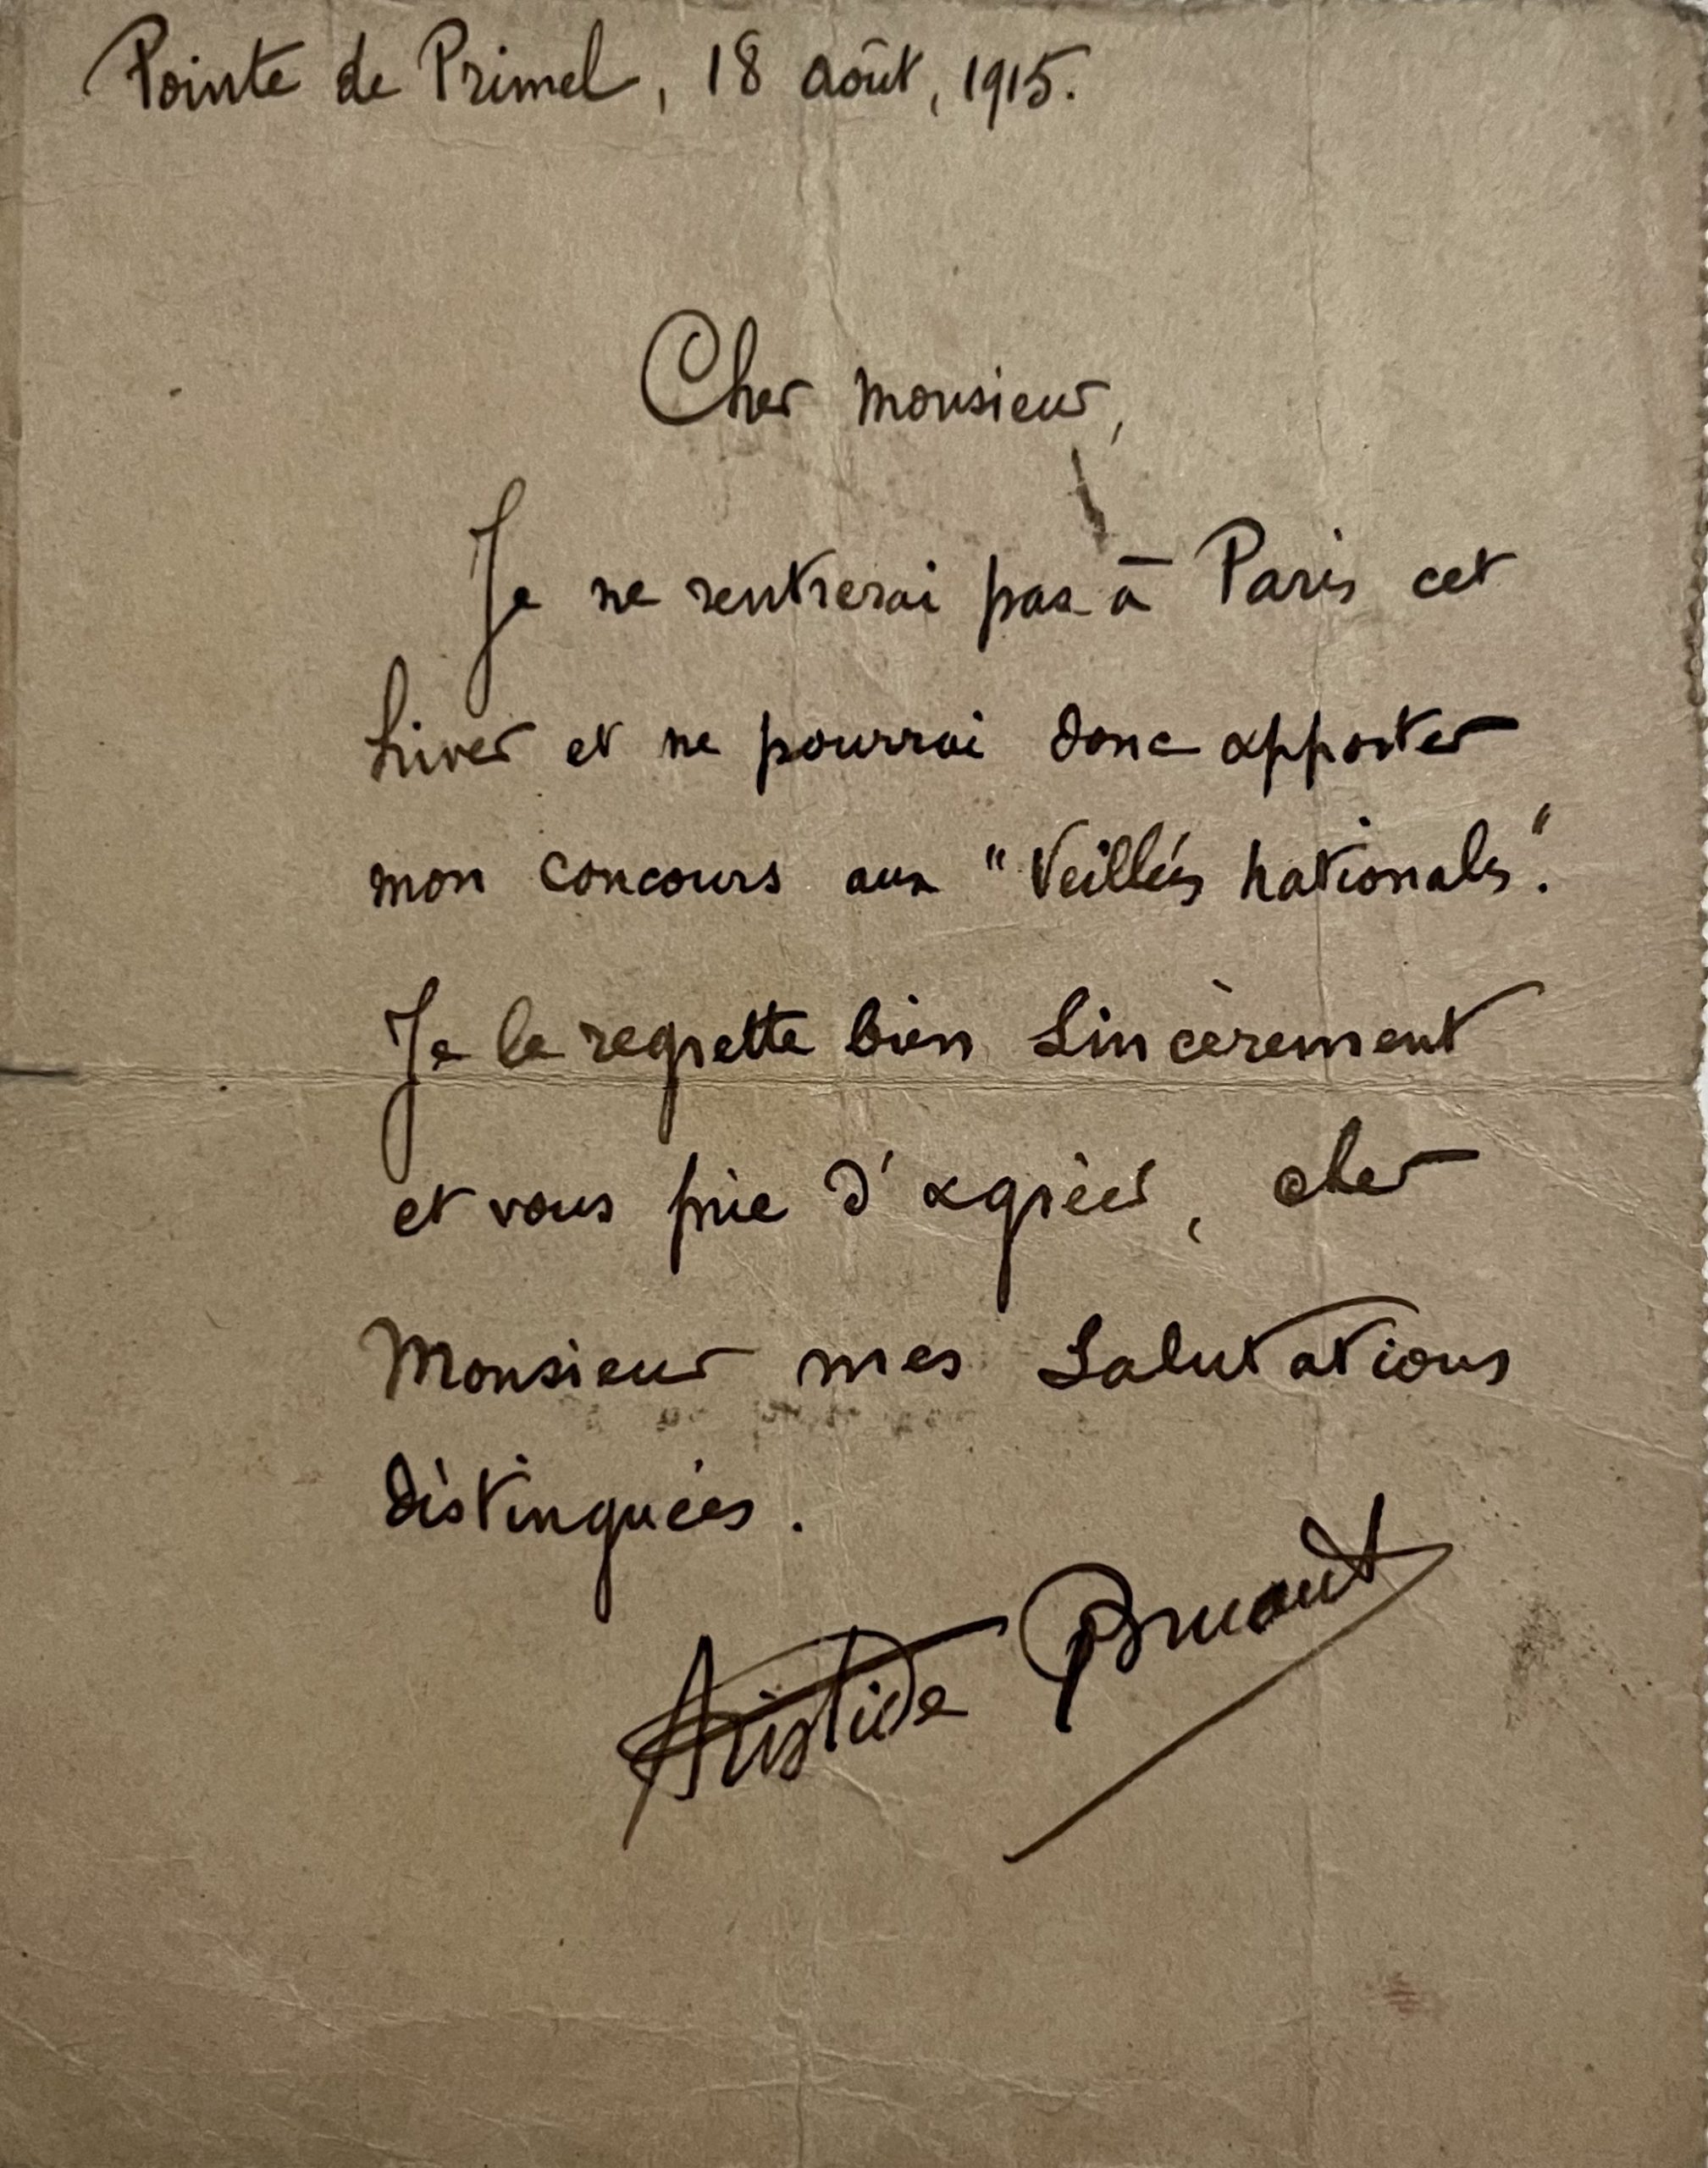 Pointe de Primel, 18 août, 1915.
Cher monsieur,
Je ne rentrerai pas à Paris cet
hiver et ne pourrai donc apporter
mon concours aux "Veillées nationales".
Je le regrette bien sincèrement
et vous prie d'agréer, cher
Monsieur mes salutations
distinguées.
Aristide Bruant